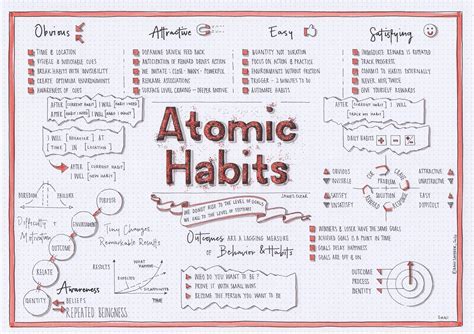 Obvious
TIME & LOCATION
VISIBLE & NOTICEABLE CUES
BREAK HABITS WITH INVISIBILITY
CREATE OPTIMUM ENVIRONMENTS
AWARENESS OF CUES
Attractive
DOPAMINE DRIVEN FEED BACK
ANTICIPATION OF REWARD DRIVES ACTION
WE IMITATE: CLOSE · MANY · POWERFUL
REFRAME ASSOCIATIONS
SURFACE LEVEL CRAVING - DEEPER MOTIVE
Easy
QUANTITY NOT DURATION
FOCUS ON ACTION & PRACTICE
ENVIRONMENTS WITHOUT FRICTION
TRIGGER - 2 MINUTES TO DO
AUTOMATE HABITS
Satisfying
IMMEDIATE REWARD IS REPEATED
TRACK PROGRESS
COMMIT TO HABITS EXTERNALLY
NEVER MISS TWICE
AFTER [CURRENT HABIT] I WILL [HABIT I NEED]
AFTER [HABIT I NEED] I WILL [HABIT I WANT]
I WILL [BEHAVIOR] AT
[TIME] IN [LOCATION]
AFTER [CURRENT HABIT]
I WILL [NEW HABIT]
AFTER [CURRENT HABIT]
I WILL
DAILY HABITS
Atomic
Habits
JAMES CLEAR
WE DO NOT RISE TO THE LEVEL OF GOALS
WE FALL TO THE LEVEL OF SYSTEMS
BOREDOM
FAILURE
Difficulty &
Motivation
PURPOSE
ENVIRONMENT
OUTCOME
RELATE
IDENTITY
Tiny Changes,
Remarkable Results
Awareness
BELIEFS
REPEATED BEINGNESS
Outcomes ARE A LAGGING MEASURE
OF Behavior & Habits
WHO DO YOU WANT TO BE?
PROVE IT WITH SMALL WINS
BECOME THE PERSON YOU WANT TO BE
OBVIOUS
INVISIBLE
SATISFYING
UNSATISFYING
PROBLEM
SOLUTION
CUE
CRAVE
RESPONSE
REWARD
ATTRACTIVE
UNATTRACTIVE
EASY
DIFFICULT
WINNERS & LOSERS HAVE THE SAME GOALS
ACHIEVED GOALS IS A POINT IN TIME
GOALS DELAY HAPPINESS
GOALS ARE AN END
OUTCOME
PROCESS
IDENTITY